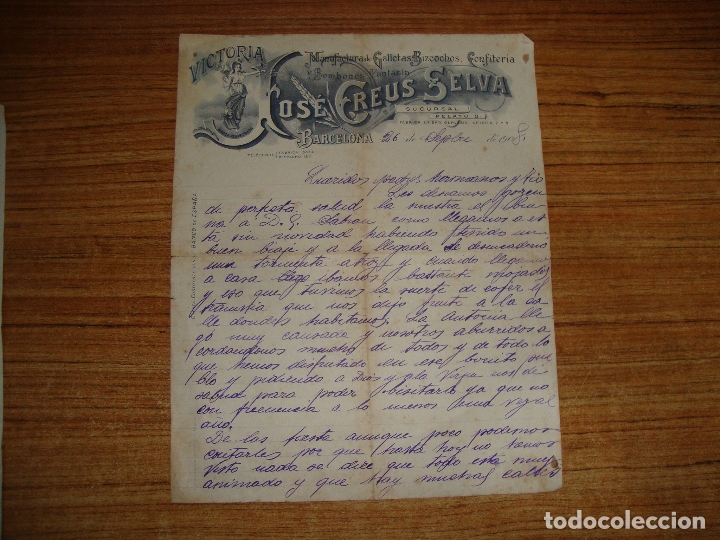 VICTORIA
Manufactura de Galletas, Bizcochos, Confitería
y Bombones
JOSÉ CREUS SELVA
SUCURSAL
PELAYO 8
BARCELONA 26 de Septbre de 1908.
Queridos padres hermanos y tio
Les deseamos gocen
de perfecta salud la nuestra es bue
na a D. G. Sabran como llegamos a es
ta sin novedad habiendo tenido un
buen biaje y a la llegada se desencadenó
una tormenta atroz y cuando llegamos
a casa ibamos bastante mojados
y eso que tuvimos la suerte de cojer el
tranvia que nos dejó frente a la ca
lle donde habitamos. La Antonia lle
gó muy cansada y nosotros aburridos a
cordandonos mucho de todos y de todo lo
que hemos disfrutado en ese bonito pue
blo y pidiendo a Dios y a la Virgen nos dé
salud para poder bisitarlo ya que no
con frecuencia a lo menos una vez al
año.
De las fiestas aunque poco podemos
contarles por que hasta hoy no hemos
visto nada se dice que todo esta muy
animado y que hay muchas
todocoleccion.net